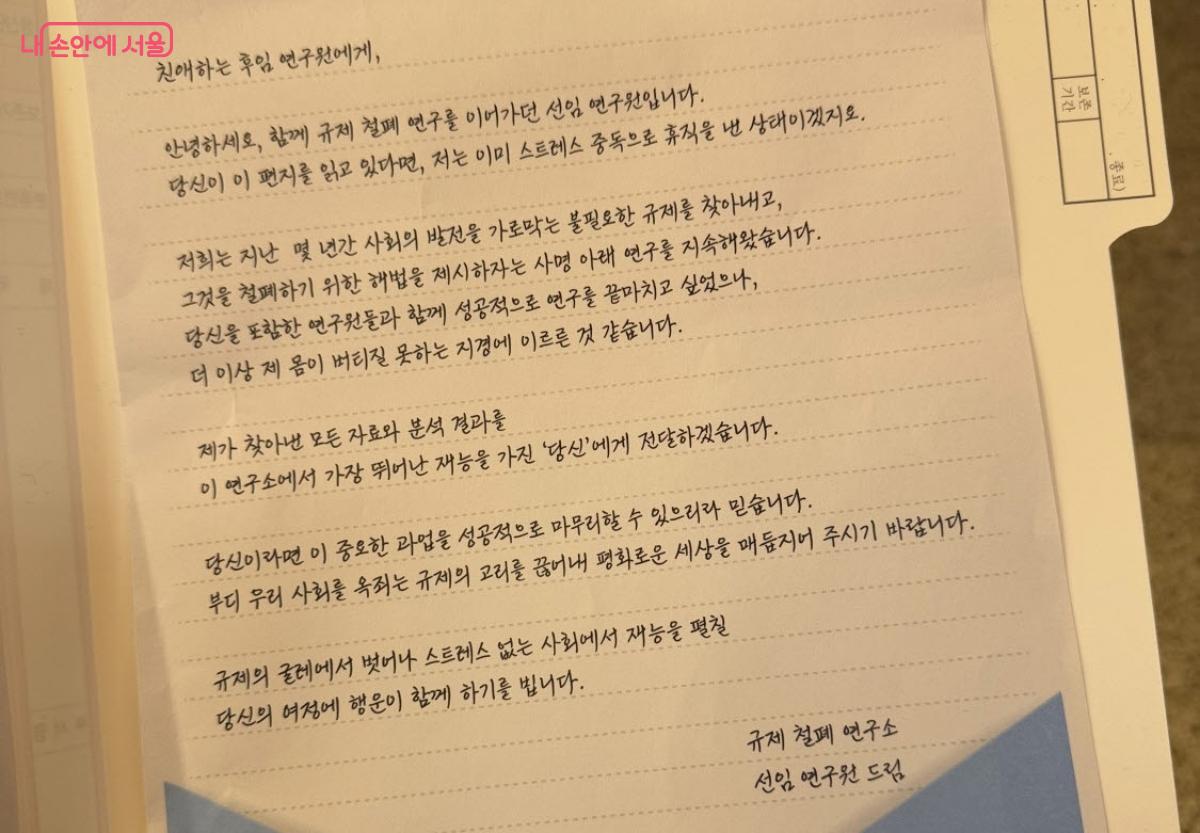 내 손안에 서울
친애하는 후임 연구원에게,
안녕하세요, 함께 규제 철폐 연구를 이어가던 선임 연구원입니다.
당신이 이 편지를 읽고 있다면, 저는 이미 스트레스 중독으로 휴직을 낸 상태이겠지요.
저희는 지난 몇 년간 사회의 발전을 가로막는 불필요한 규제를 찾아내고,
그것을 철폐하기 위한 해법을 제시하자는 사명 아래 연구를 지속해왔습니다.
당신을 포함한 연구원들과 함께 성공적으로 연구를 끝마치고 싶었으나,
더 이상 제 몸이 버티질 못하는 지경에 이르른 것 같습니다.
제가 찾아낸 모든 자료와 분석 결과를
이 연구소에서 가장 뛰어난 재능을 가진 '당신'에게 전달하겠습니다.
당신이라면 이 중요한 과업을 성공적으로 마무리할 수 있으리라 믿습니다.
부디 우리 사회를 옥죄는 규제의 고리를 끊어내 평화로운 세상을 매듭지어 주시기 바랍니다.
규제의 굴레에서 벗어나 스트레스 없는 사회에서 재능을 펼칠
당신의 여정에 행운이 함께 하기를 빕니다.
규제 철폐 연구소
선임 연구원 드림
보존
기간
종료)